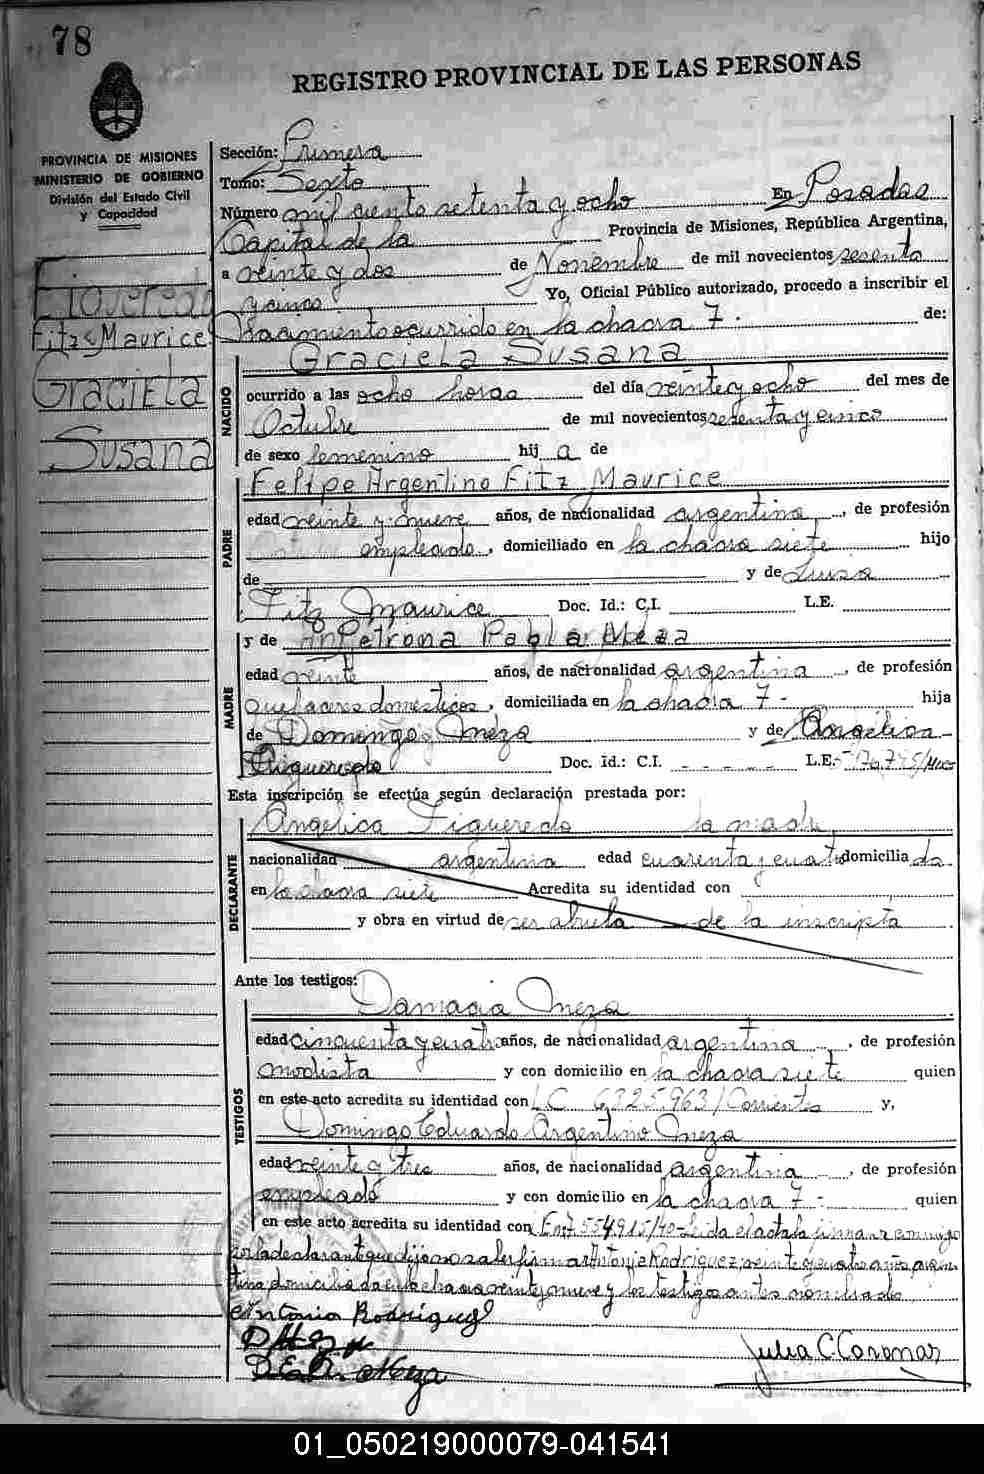 78
REGISTRO PROVINCIAL DE LAS PERSONAS
PROVINCIA DE MISIONES
MINISTERIO DE GOBIERNO
División del Estado Civil
y Capacidad
Figueredo
Fitz Maurice
Graciela
Susana
Sección: Primera
Tomo: Sexto
Número mil ciento setenta y ocho En Posadas
Capital de la Provincia de Misiones, República Argentina,
a veinte y dos de Noviembre de mil novecientos sesenta
y cinco Yo, Oficial Público autorizado, procedo a inscribir el
Nacimiento ocurrido en la chacra 7 - de:
NACIDO
Graciela Susana
ocurrido a las ocho horas del día veinte y ocho del mes de
Octubre de mil novecientos sesenta y cinco
de sexo femenino hij a de
PADRE
Felipe Argentino Fitz Maurice
edad veinte y nueve años, de nacionalidad argentina, de profesión
empleado, domiciliado en la chacra siete hijo
de y de Luisa
Fitz Maurice Doc. Id.: C.I. L.E.
MADRE
y de Petrona Pabla Meza
edad veinte años, de nacionalidad argentina, de profesión
quehaceres domésticos, domiciliada en la chacra 7 - hija
de Domingo Meza y de Angélica
Figueredo Doc. Id.: C.I. - - - - - L.E.
Esta inscripción se efectúa según declaración prestada por:
DECLARANTE
Angélica Figueredo la madre
nacionalidad argentina edad cuarenta y cuatro domicilia da
en la chacra siete Acredita su identidad con
y obra en virtud de ser abuela de la inscripta
Ante los testigos:
TESTIGOS
Damacia Meza
edad cincuenta y cuatro años, de nacionalidad argentina, de profesión
modista y con domicilio en la chacra siete quien
en este acto acredita su identidad con LC 6325963/Corrientes y,
Domingo Eduardo Argentino Meza
edad veinte y tres años, de nacionalidad argentina, de profesión
empleado y con domicilio en la chacra 7 - quien
en este acto acredita su identidad con 7554915/40 - Leida el acta la firman conmigo
por la declarante que dijo no saber firmar Antonia Rodriguez, veinte y cuatro años, argen
tina domiciliada en la chacra veinte y nueve y los testigos antes nombrados
Antonia Rodríguez
D Meza
D.E.A. Meza
Julia C. Coronar
01_050219000079-041541